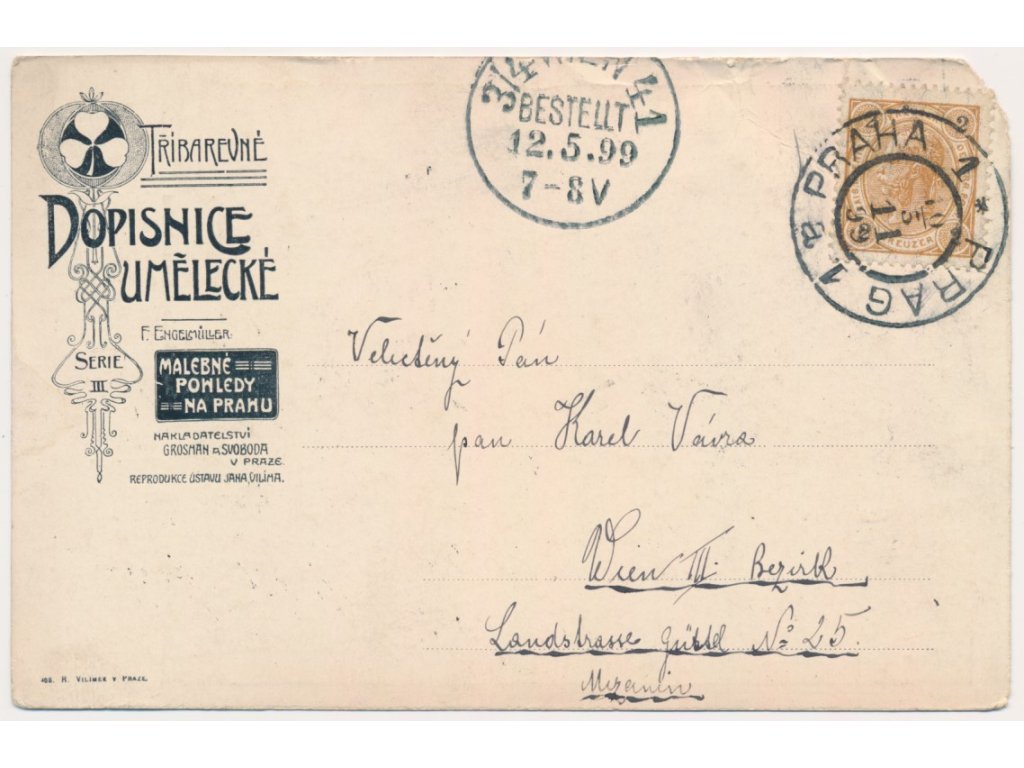 TŘÍBAREVNÉ
DOPISNICE
UMĚLECKÉ
F. ENGELMÜLLER.
SERIE
III
MALEBNÉ
POHLEDY
NA PRAHU
NAKLADATELSTVÍ
GROSMAN A SVOBODA
V PRAZE.
REPRODUKCE ÚSTAVU JANA VILÍMA.
3/4 WIEN 41
BESTELLT
12.5.99
7-8V
PRAHA 1
PRAG 1 a
11
5
99
KREUZER
2
Velectěný Pán
pan Karel Vávra
Wien III. Bezirk
Landstrasse Gürtel No 25.
Mezanin
JOS. R. VILÍMEK V PRAZE.